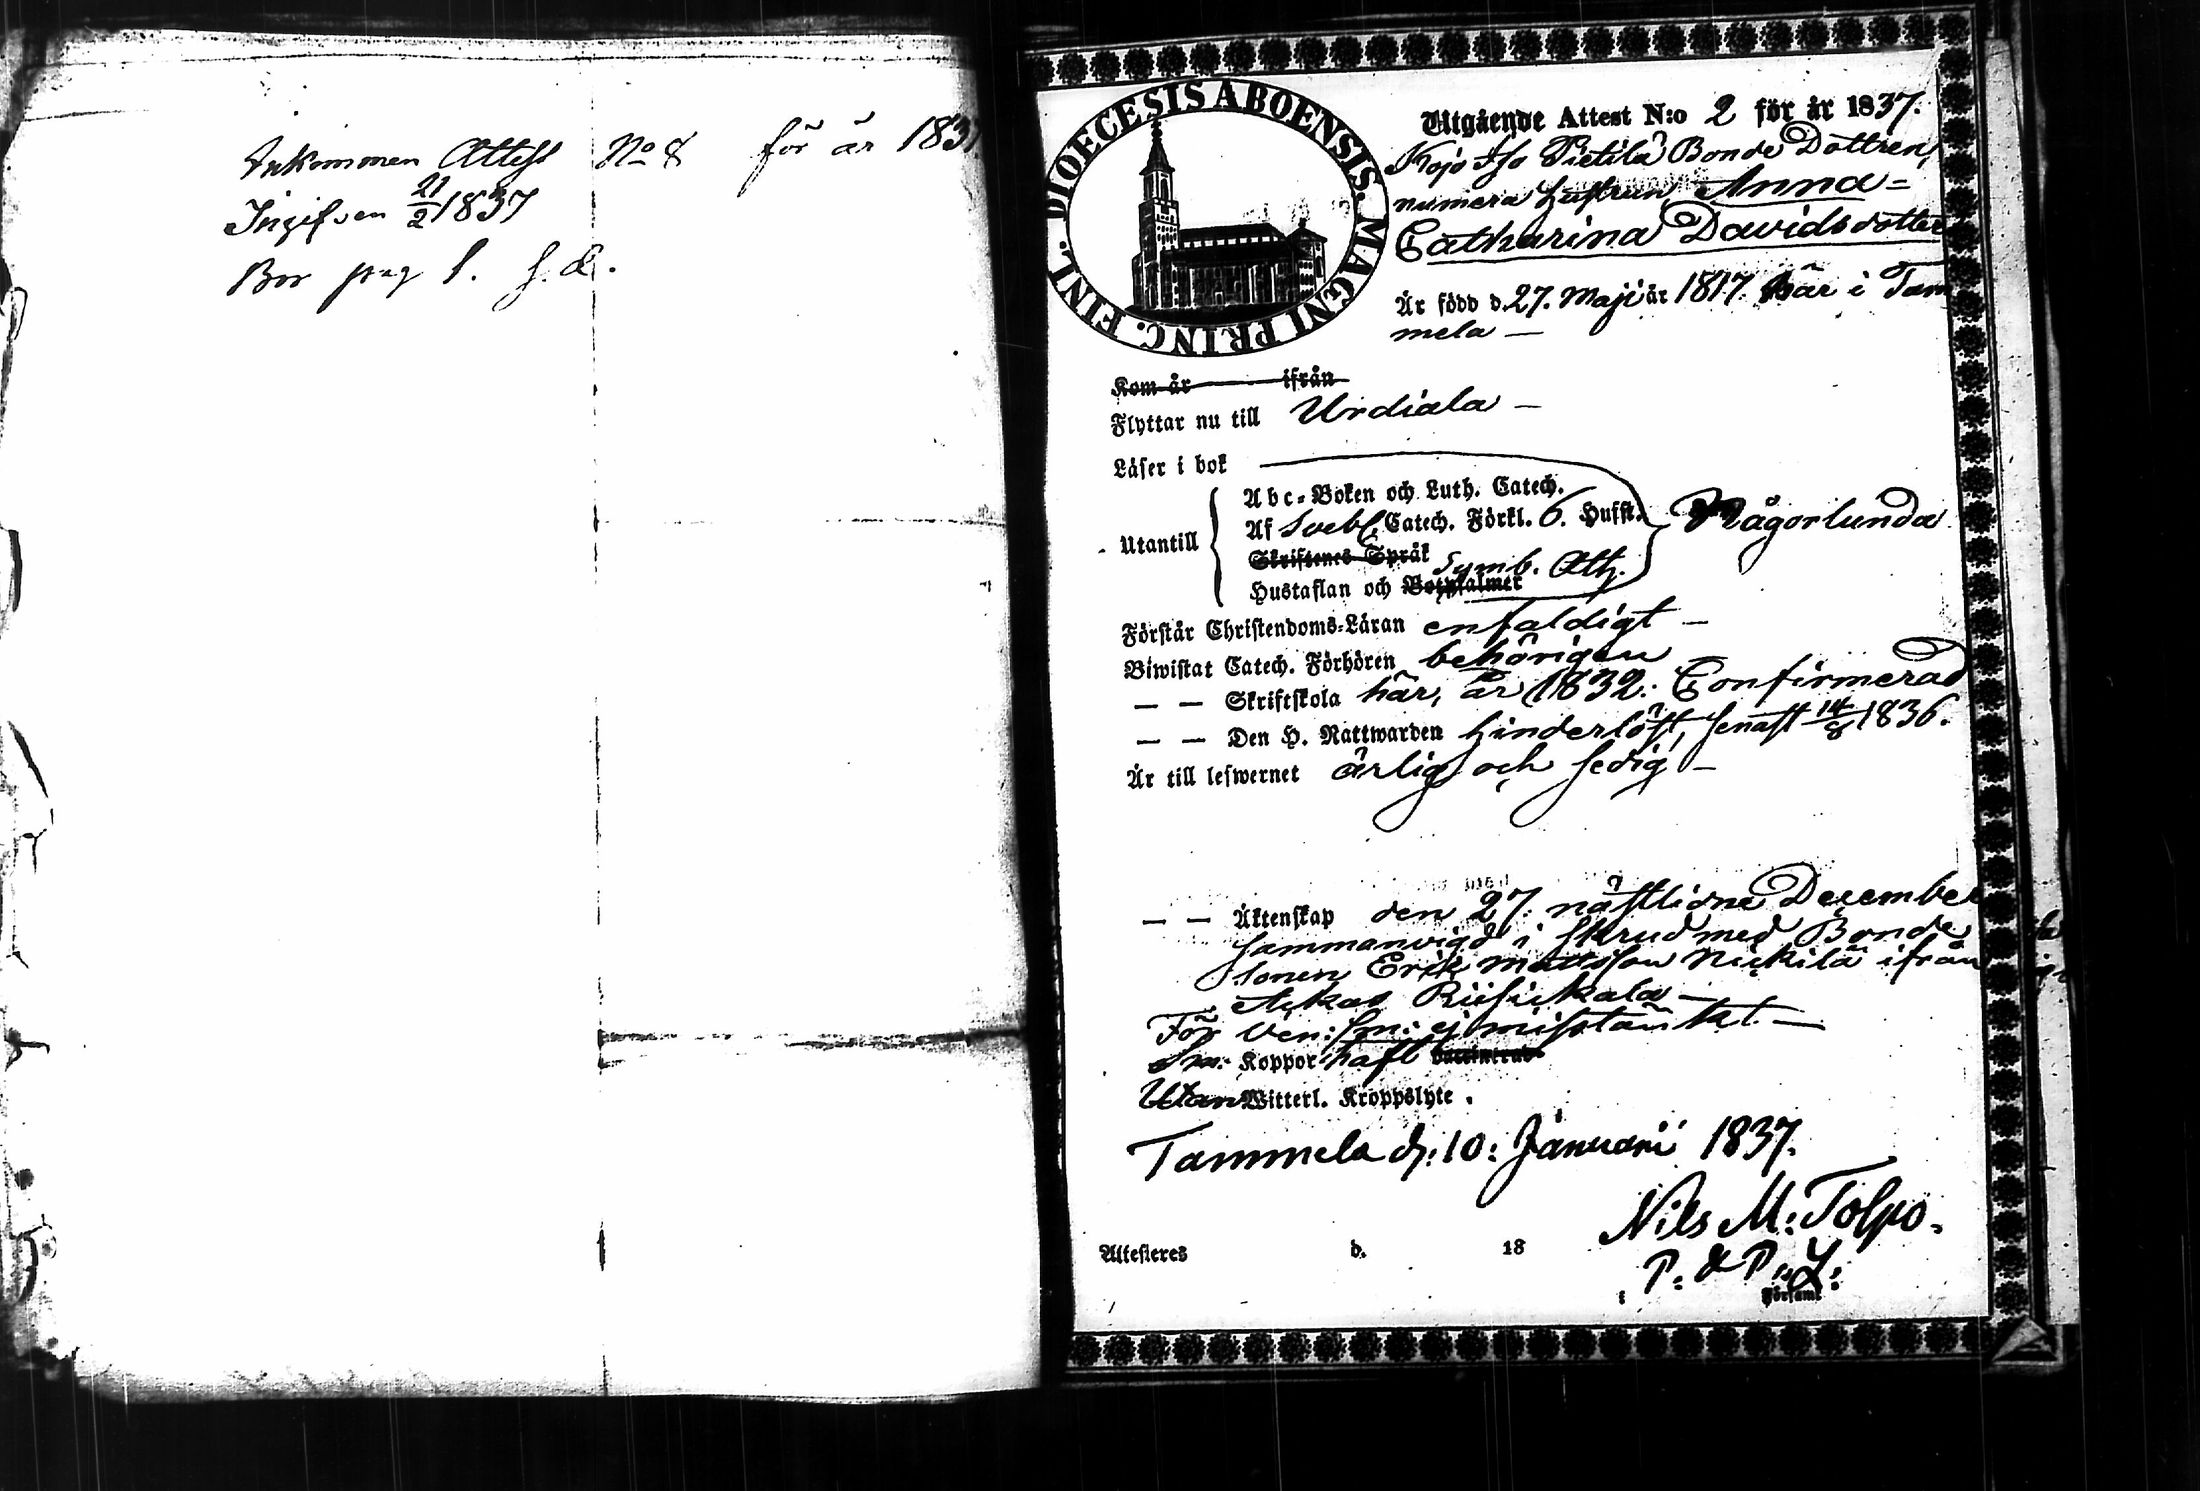 Inkommen Attest No 8 för år 1837
Ingifven 21/2 1837
Bor pag 1.
DIOECESIS ABOENSIS. MAGNI PRINC. FINL.
Utgående Attest N:o 2 för år 1837.
Kojo Iso Pietilä Bonde Dottren,
numera hustrun Anna=
Catharina Davidsdotter
Är född d. 27. Maji år 1817. här i Tam
mela —
Kom år ifrån
Flyttar nu till Urdiala —
Läser i bok
Abc=Boken och Luth. Catech.
Utantill Af Svebl. Catech. Förkl. 6. Hufst. Någorlunda
Skriftenes Språk Symb. Ath.
Hustaflan och Botpsalmer
Förstår Christendoms=Läran enfaldigt —
Biwistat Catech. Förhören behörigen
— — Skriftskola här, år 1832. Confirmerad
— — Den H. Nattwarden hinderlöst, senast 14/8 1836.
Är till lefwernet ärlig och sedig —
— — Äktenskap den 27. nästlidne December
sammanvigd i skrud med Bonde
sonen Erik Mattsson Nickilä ifrån
Ackas
För Ven: Sm: ej misstänkt —
Sm: Koppor haft
Utan Witterl. Kroppslyte.
Tammela d. 10: Januarii 1837.
Nils M: Tolpo.
Attesteres d. 18
P: & P: L:
Församl.